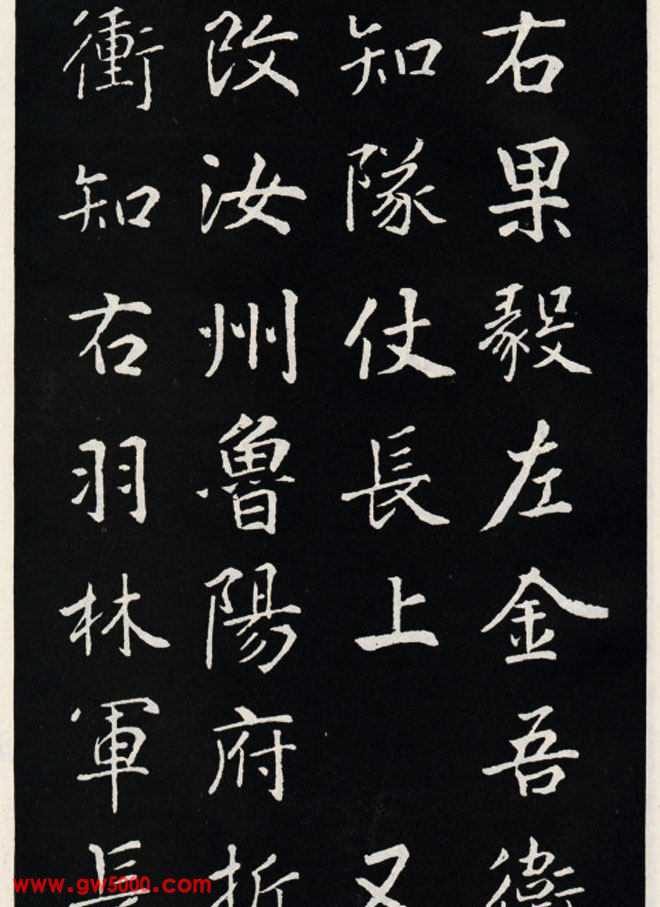 右果毅左金吾衛
知隊仗長上又
改汝州魯陽府折
衝知右羽林軍長
www.gw5000.com